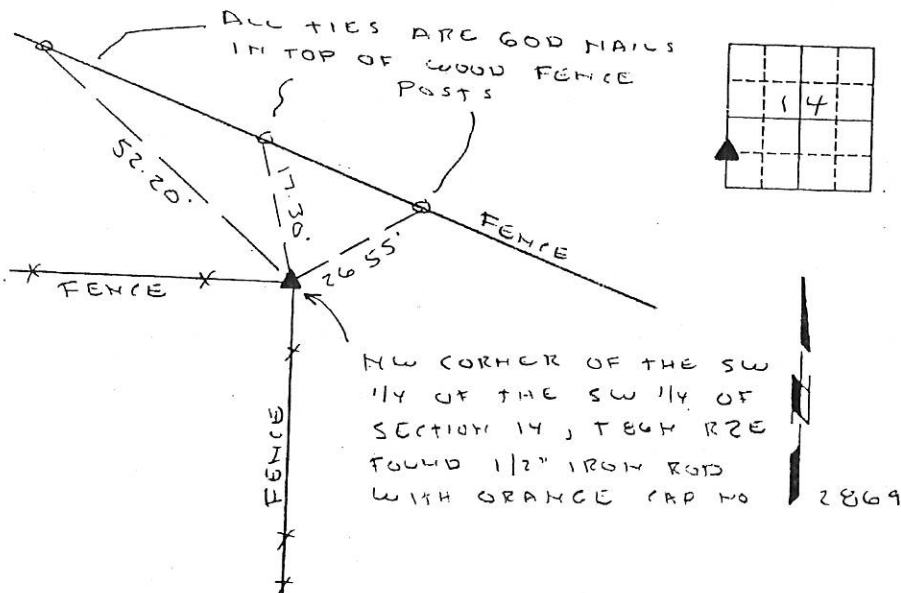 ALL TIES ARE 60D NAILS
IN TOP OF WOOD FENCE
POSTS
14
52.20'
17.30'
26.55'
FENCE
FENCE
FENCE
NW CORNER OF THE SW
1/4 OF THE SW 1/4 OF
SECTION 14, T86N R2E
FOUND 1/2" IRON ROD
WITH ORANGE CAP NO 2869